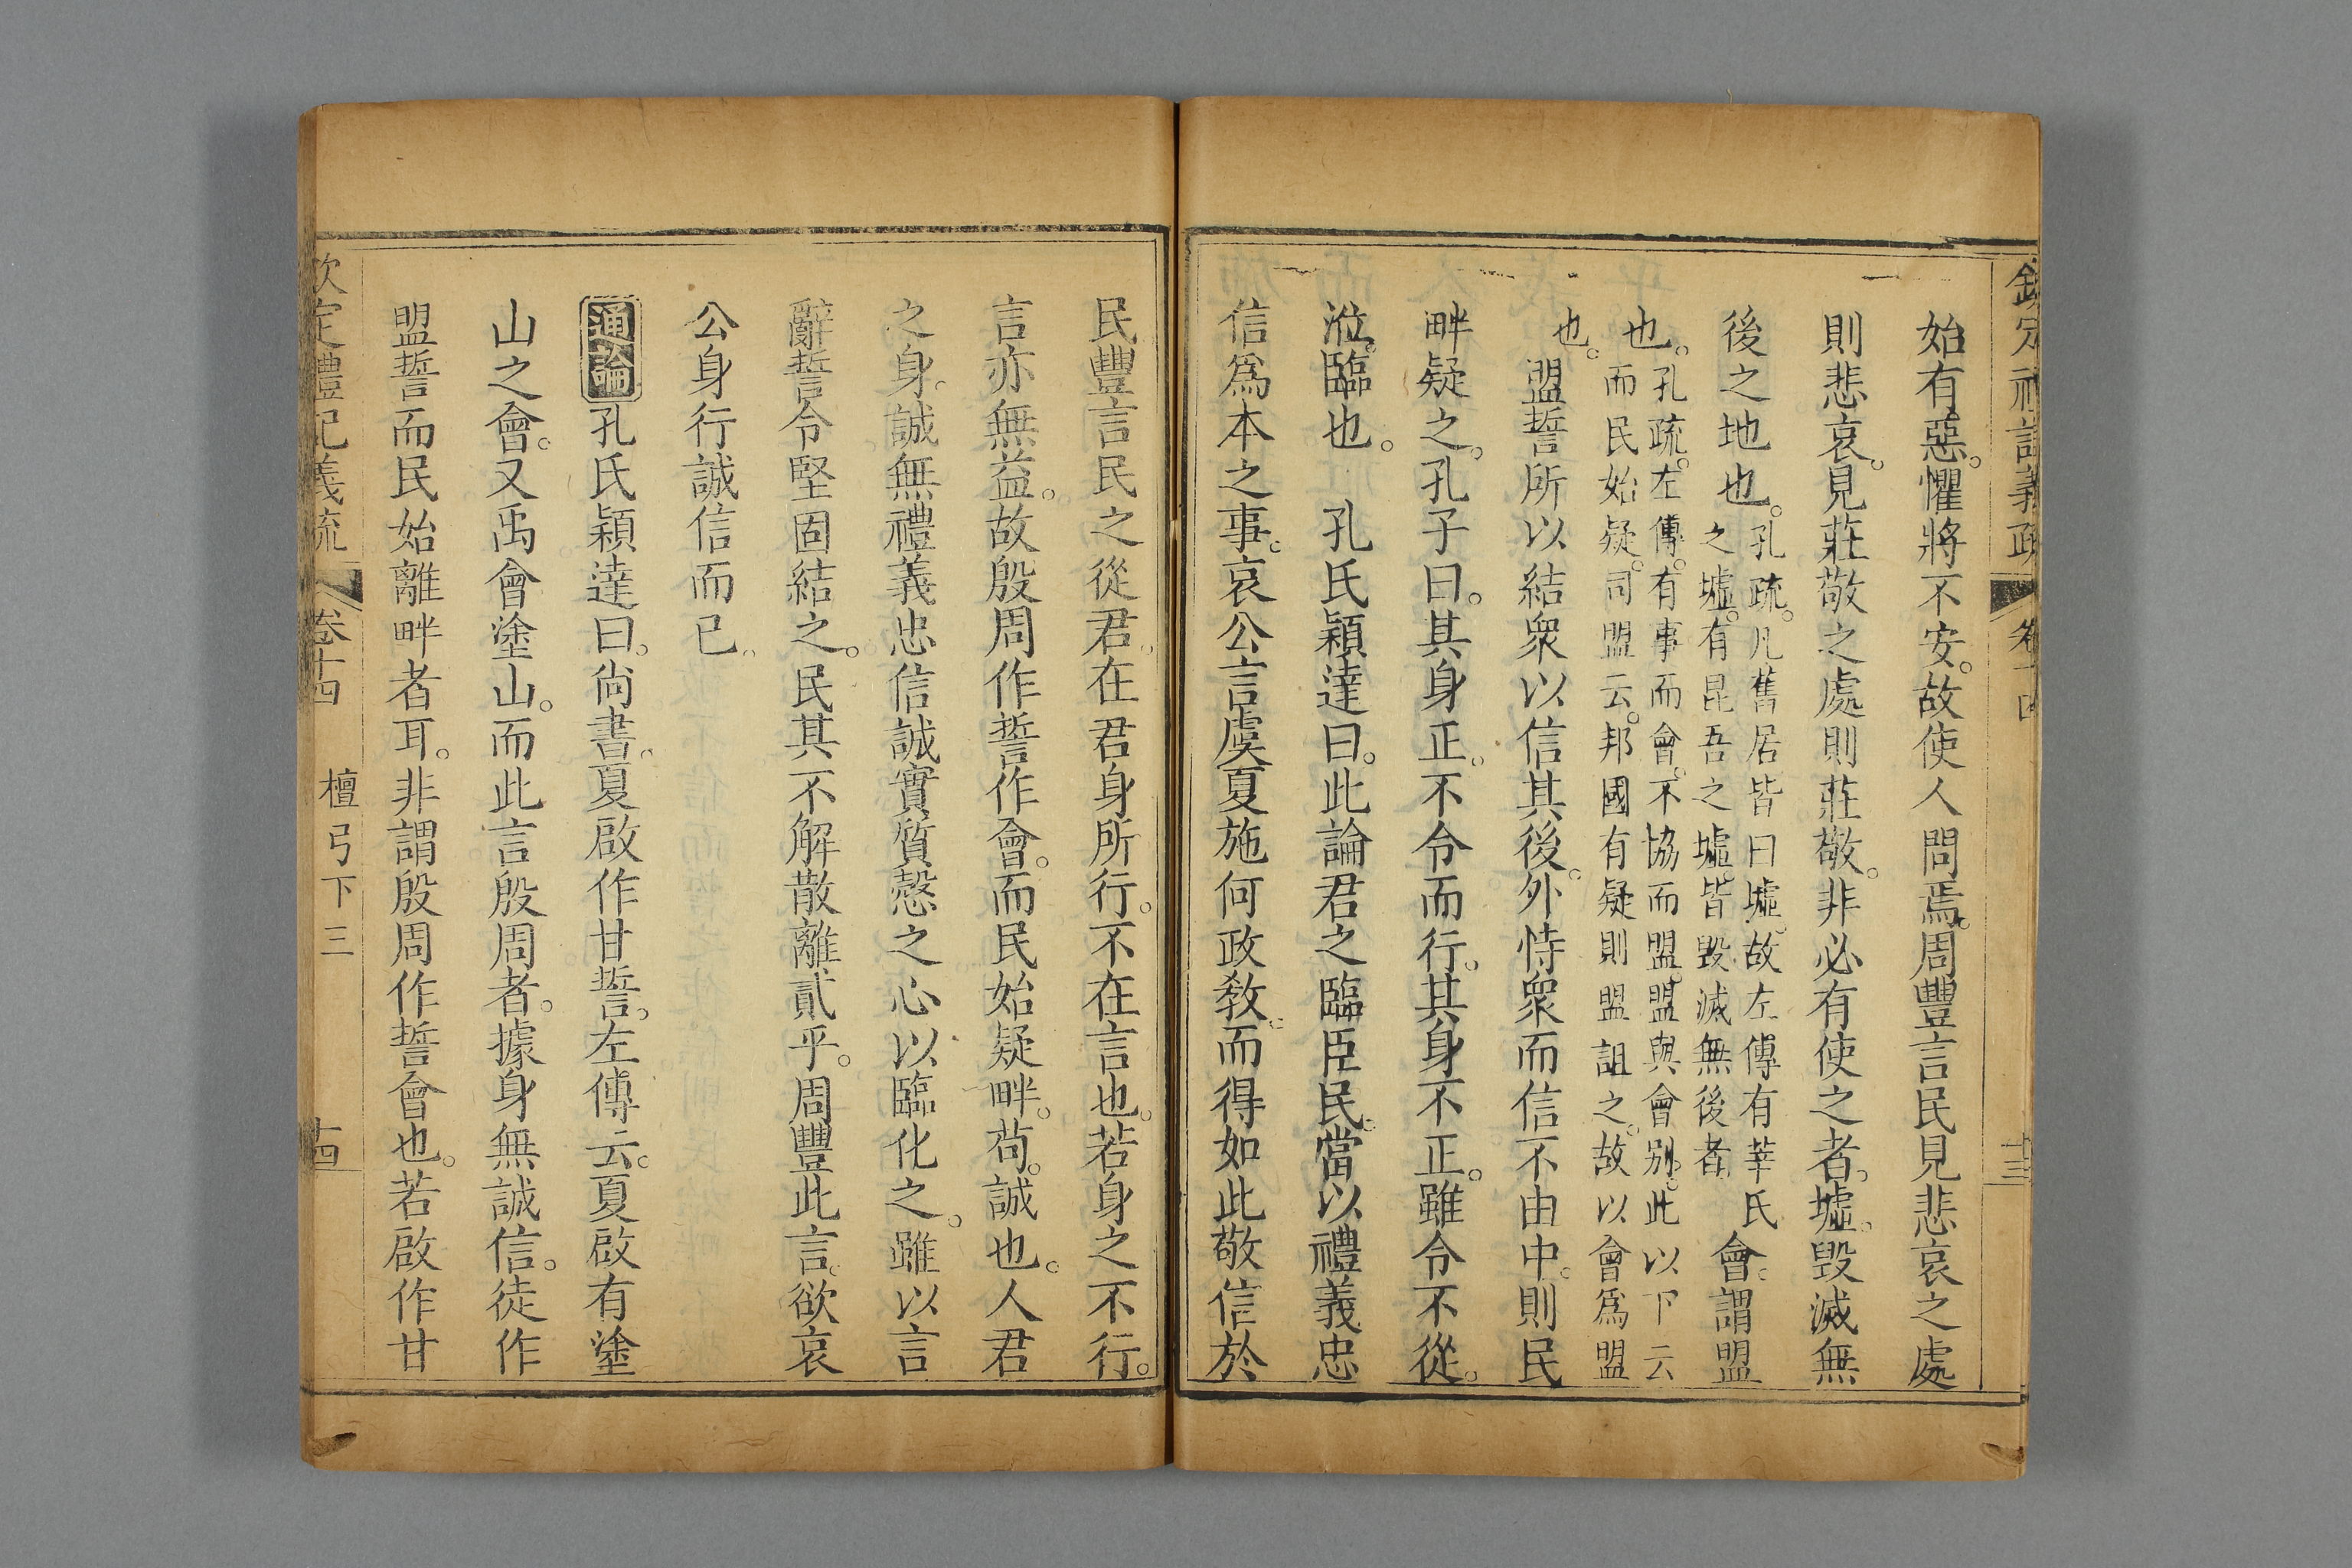 欽定禮記義疏 卷十四 十三
始有惡。懼將不安。故使人問焉。周豐言民見悲哀之處
則悲哀。見莊敬之處則莊敬。非必有使之者。墟。毀滅無
後之地也。孔疏。凡舊居皆曰墟。故左傳有莘氏
之墟。有昆吾之墟。皆毀滅無後者。會。謂盟
也。孔疏。左傳。有事而會。不協而盟。盟與會別。此以下云
而民始疑。司盟云。邦國有疑則盟詛之。故以會爲盟
也。盟誓所以結衆以信其後。外恃衆而信不由中。則民
畔疑之。孔子曰。其身正。不令而行。其身不正。雖令不從。
涖。臨也。 孔氏穎達曰。此論君之臨臣民。當以禮義忠
信爲本之事。哀公言虞夏施何政敎。而得如此敬信於
民豐言民之從君。在君身所行。不在言也。若身之不行。
言亦無益。故殷周作誓作會。而民始疑畔。苟。誠也。人君
之身。誠無禮義忠信誠實質慤之心以臨化之。雖以言
辭誓令堅固結之。民其不解散離貳乎。周豐此言。欲哀
公身行誠信而已。
通論孔氏穎達曰。尚書。夏啟作甘誓。左傳云。夏啟有塗
山之會。又禹會塗山。而此言殷周者。據身無誠信。徒作
盟誓而民始離畔者耳。非謂殷周作誓會也。若啟作甘
欽定禮記義疏 卷十四 檀弓下三 十四